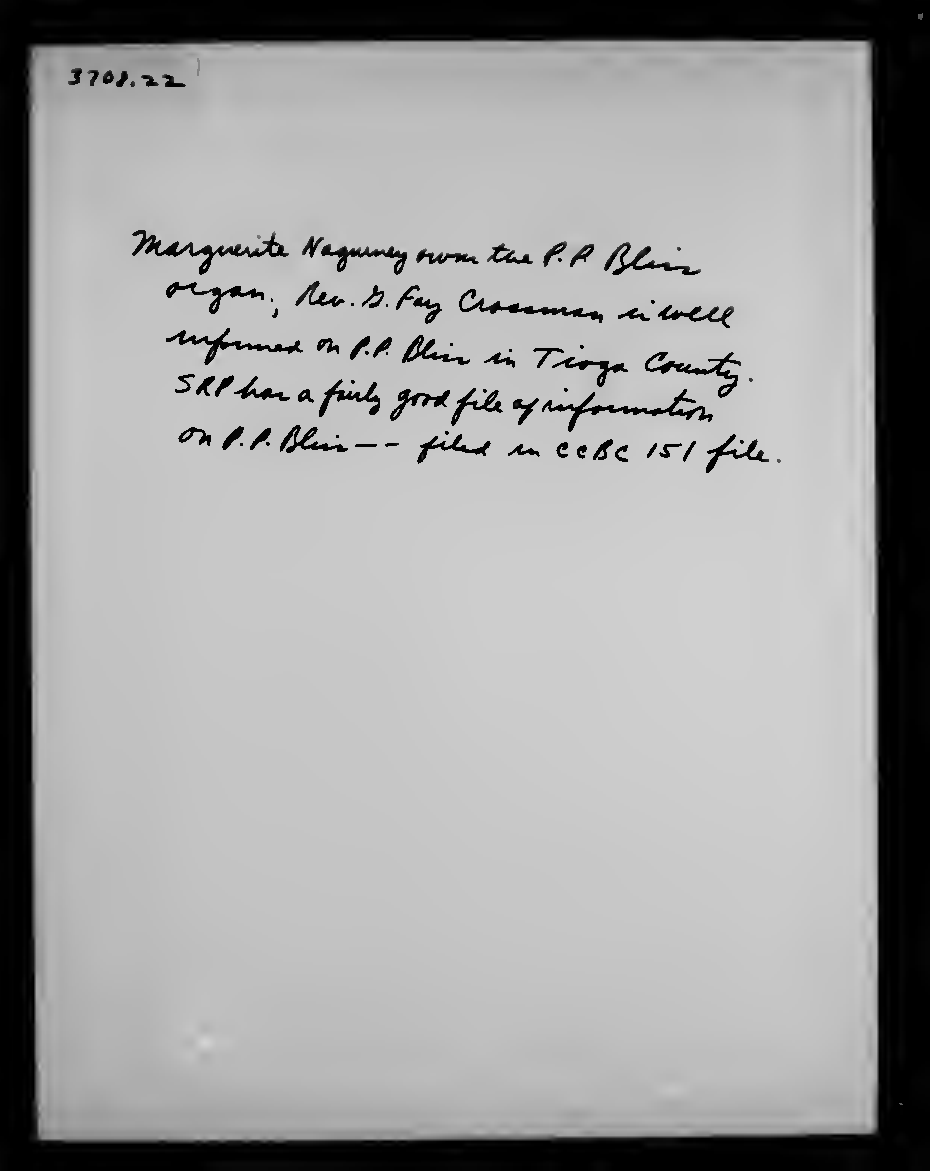 3708.22
Marguerite Nagurney owns the P.P. Bliss
organ; Rev. G. Fay Crossman is well
informed on P.P. Bliss in Tioga County.
SRP has a fairly good file of information
on P.P. Bliss -- filed in CCBC 151 file.